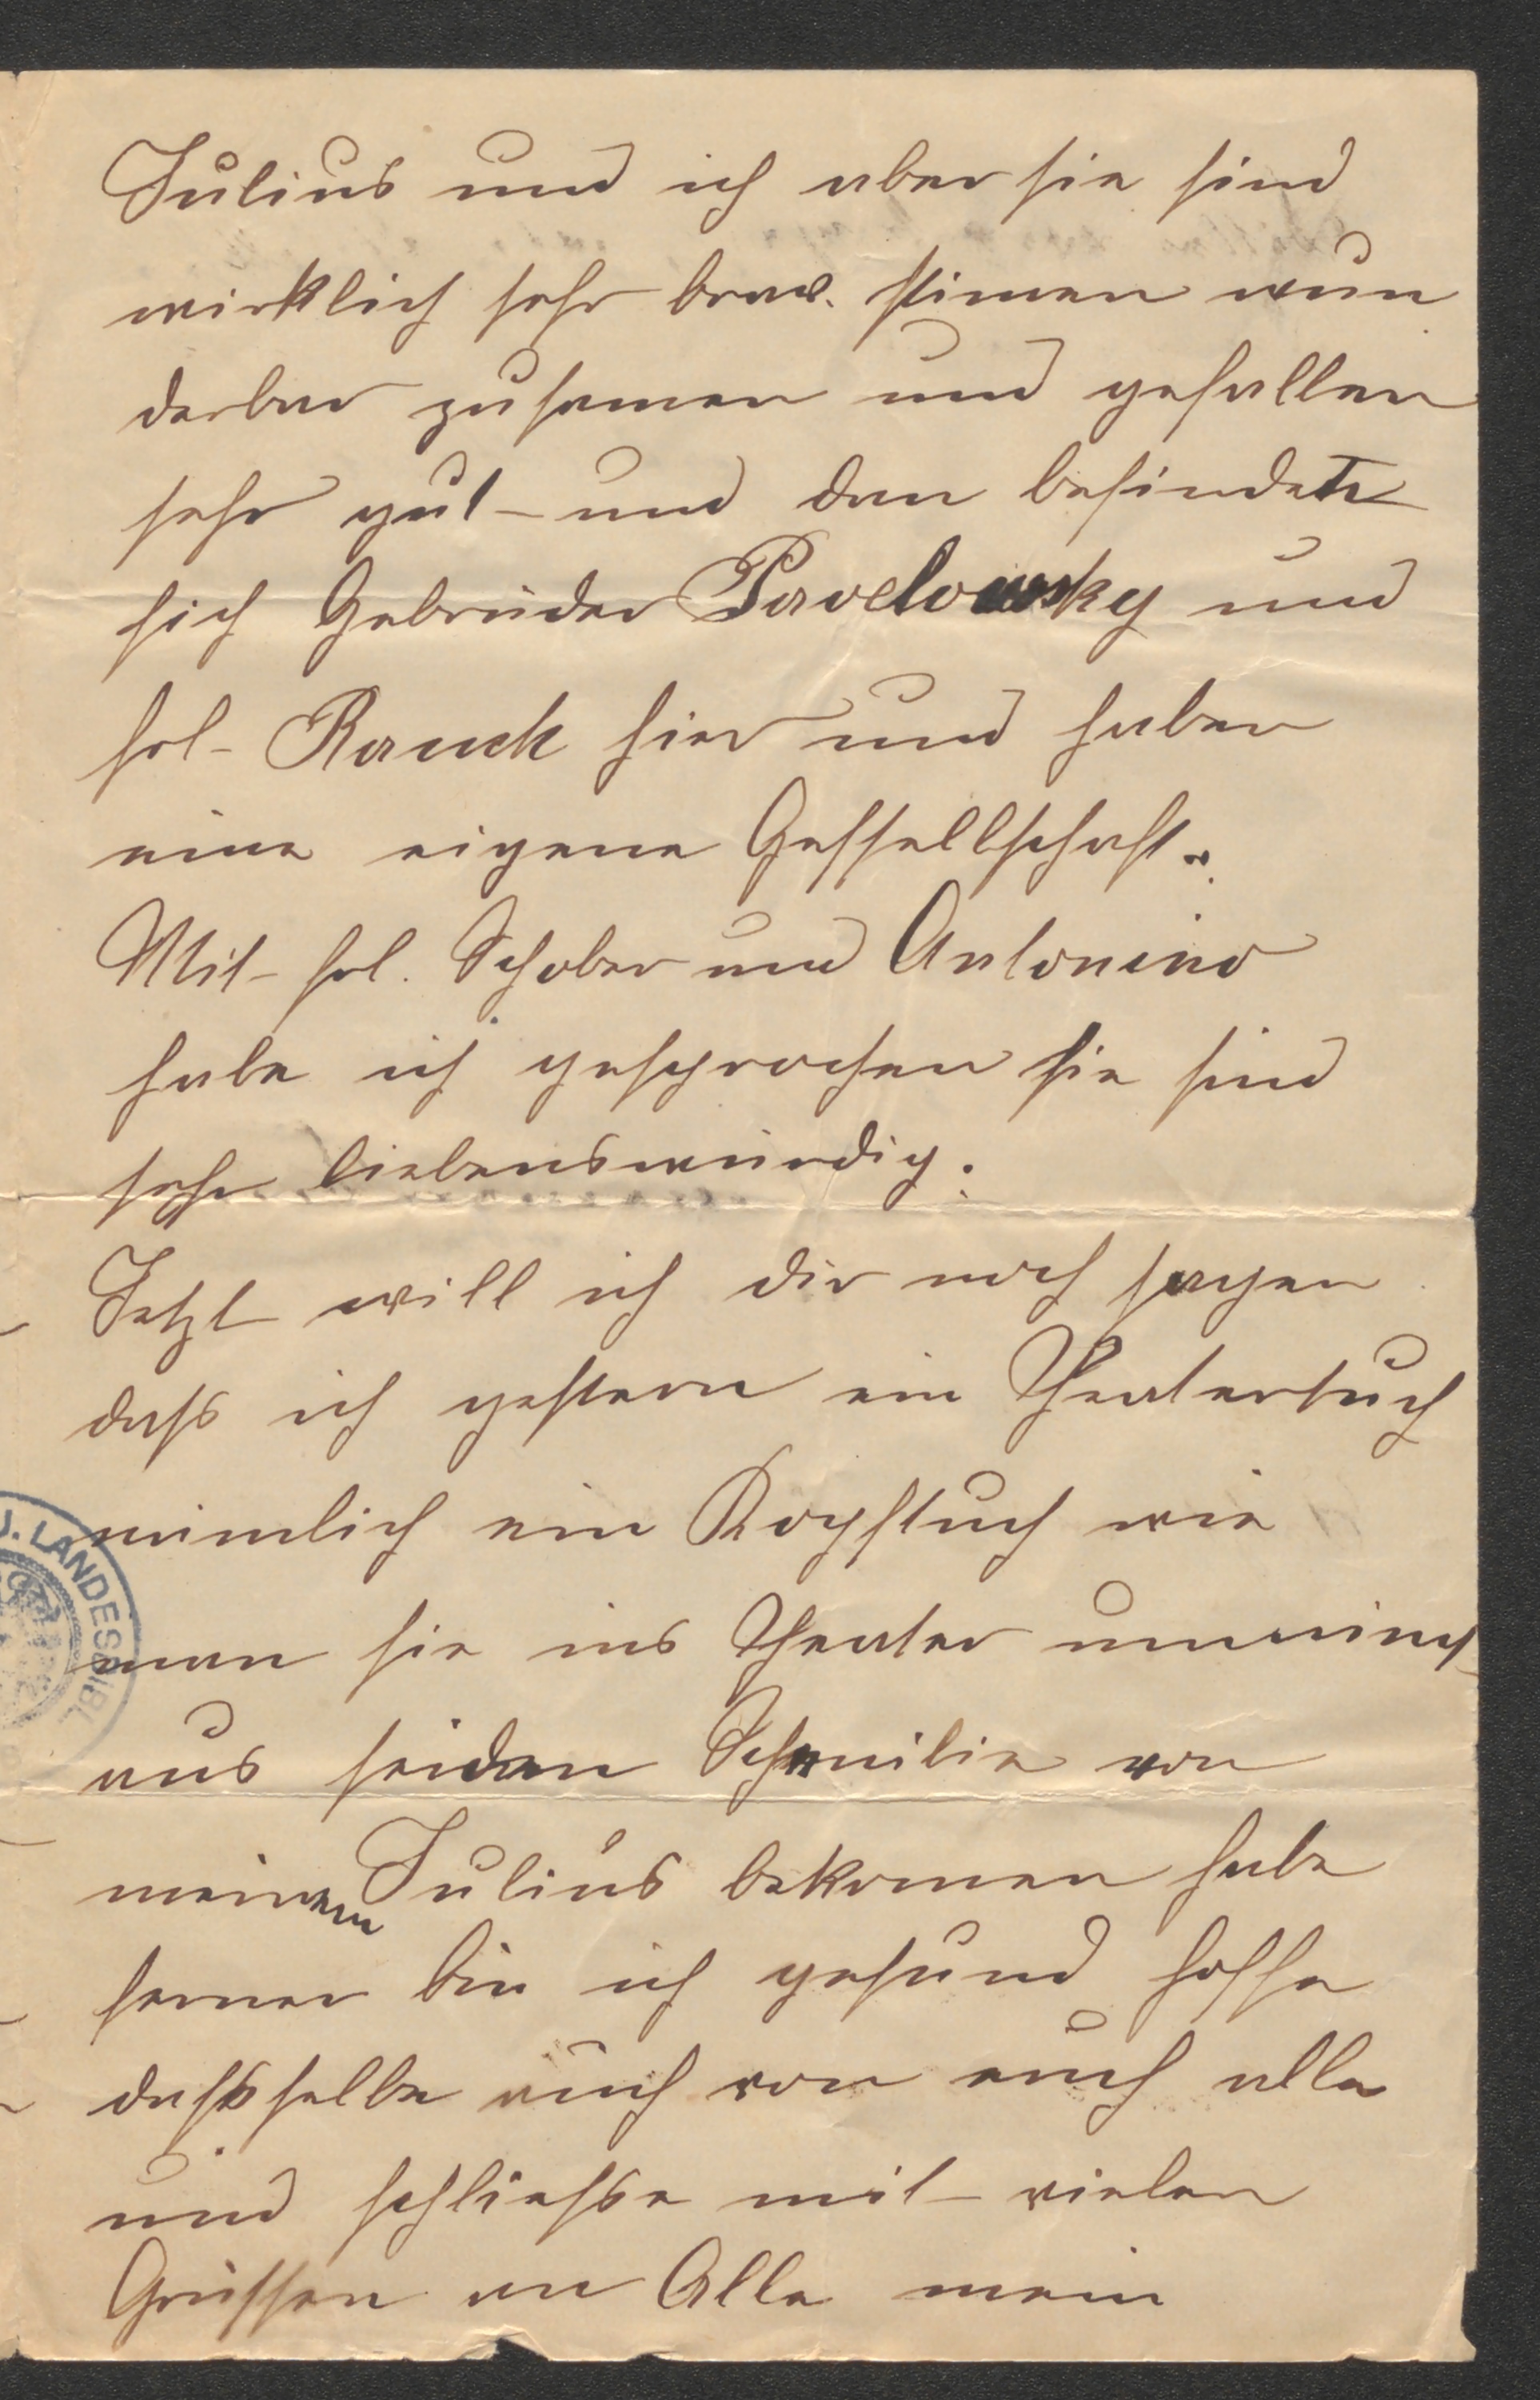 Julius und ich aber sie sind
wirklich sehr brav. stimen wun
derbar zusamen und gefallen
sehr gut – und dan befinden
sich Gebrüder Pavelowsky und
frl. Rauch hier und haben
eine eigene Gessellschaft.
Mit frl. Schober und Antonino
habe ich gesprochen sie sind
sehr liebenswürdig.
Jetzt will ich dir noch sagen
dass ich gestern ein Theatertuch
nämlich ein Kopftuch wie
man sie ins Theater
aus seiden Schenilie von
meinem Julius bekomen habe
ferner bin ich gesund hoffe
dassselbe auch von euch alle
und schliesse mit vielen
Grüssen an Alle mein
J. LANDESBIBL